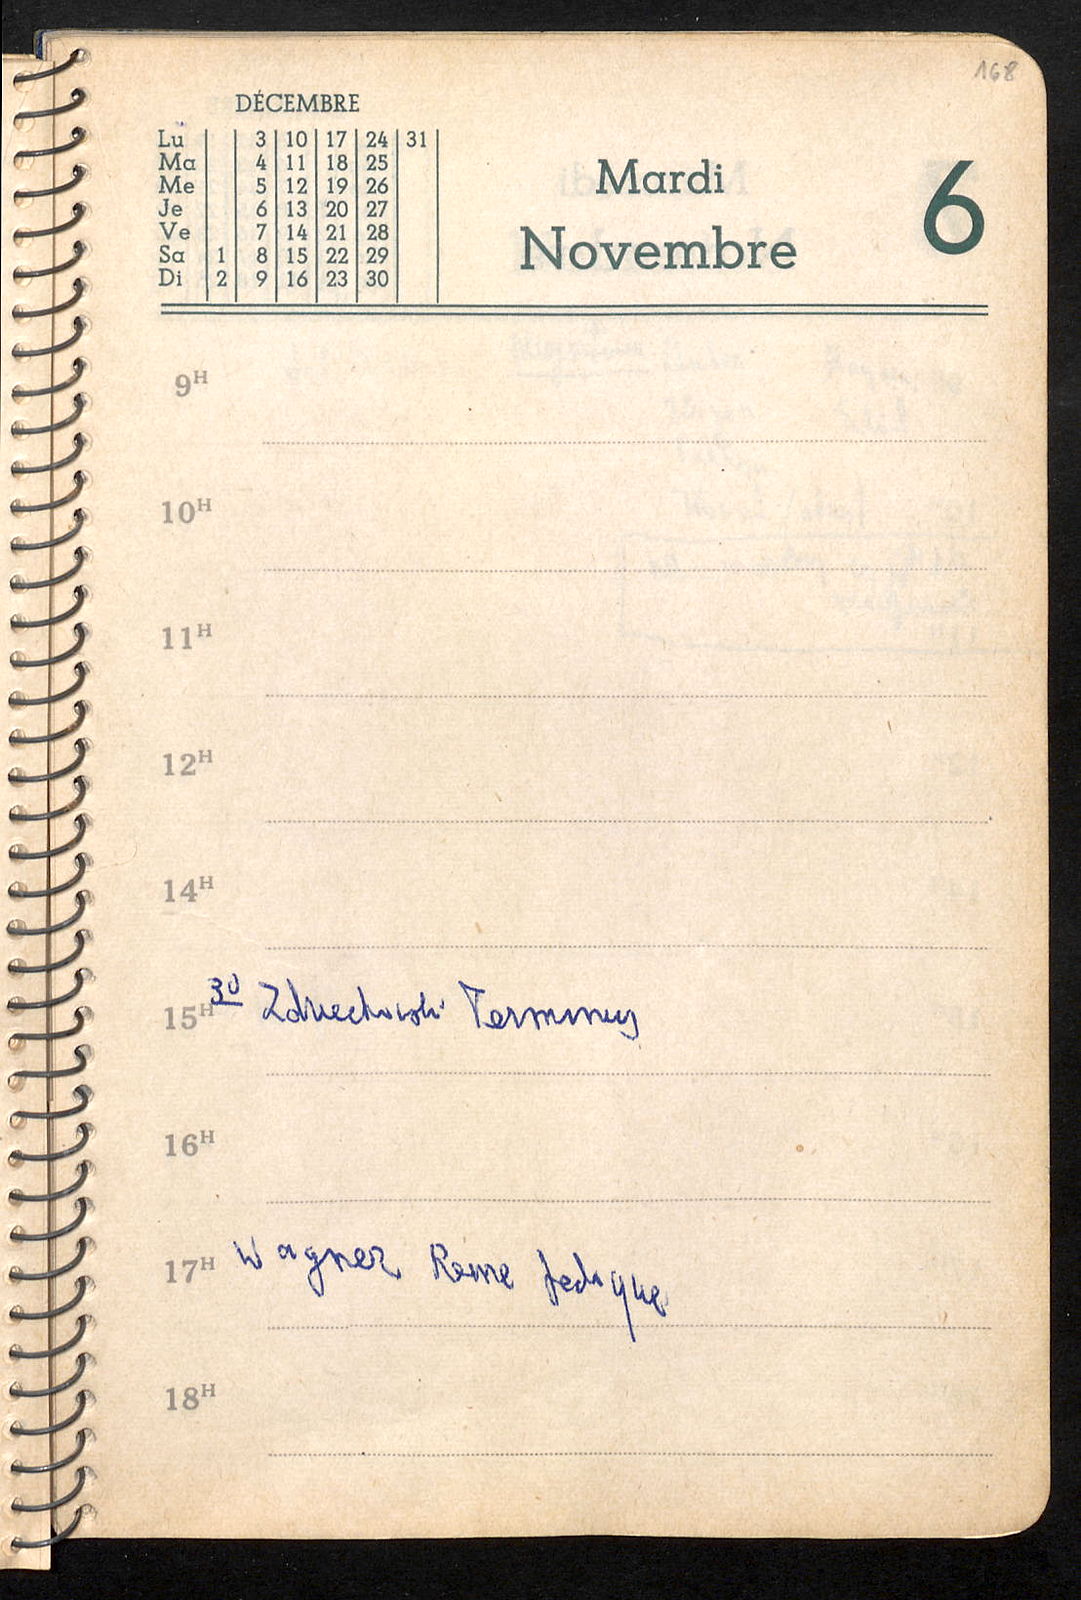 168
DÉCEMBRE
Lu 3 10 17 24 31
Ma 4 11 18 25
Me 5 12 19 26
Je 6 13 20 27
Ve 7 14 21 28
Sa 1 8 15 22 29
Di 2 9 16 23 30
Mardi
Novembre
6
9H
10H
11H
12H
14H
15H 30 Zdziechowski Terminus
16H
17H Wagner Reine
18H